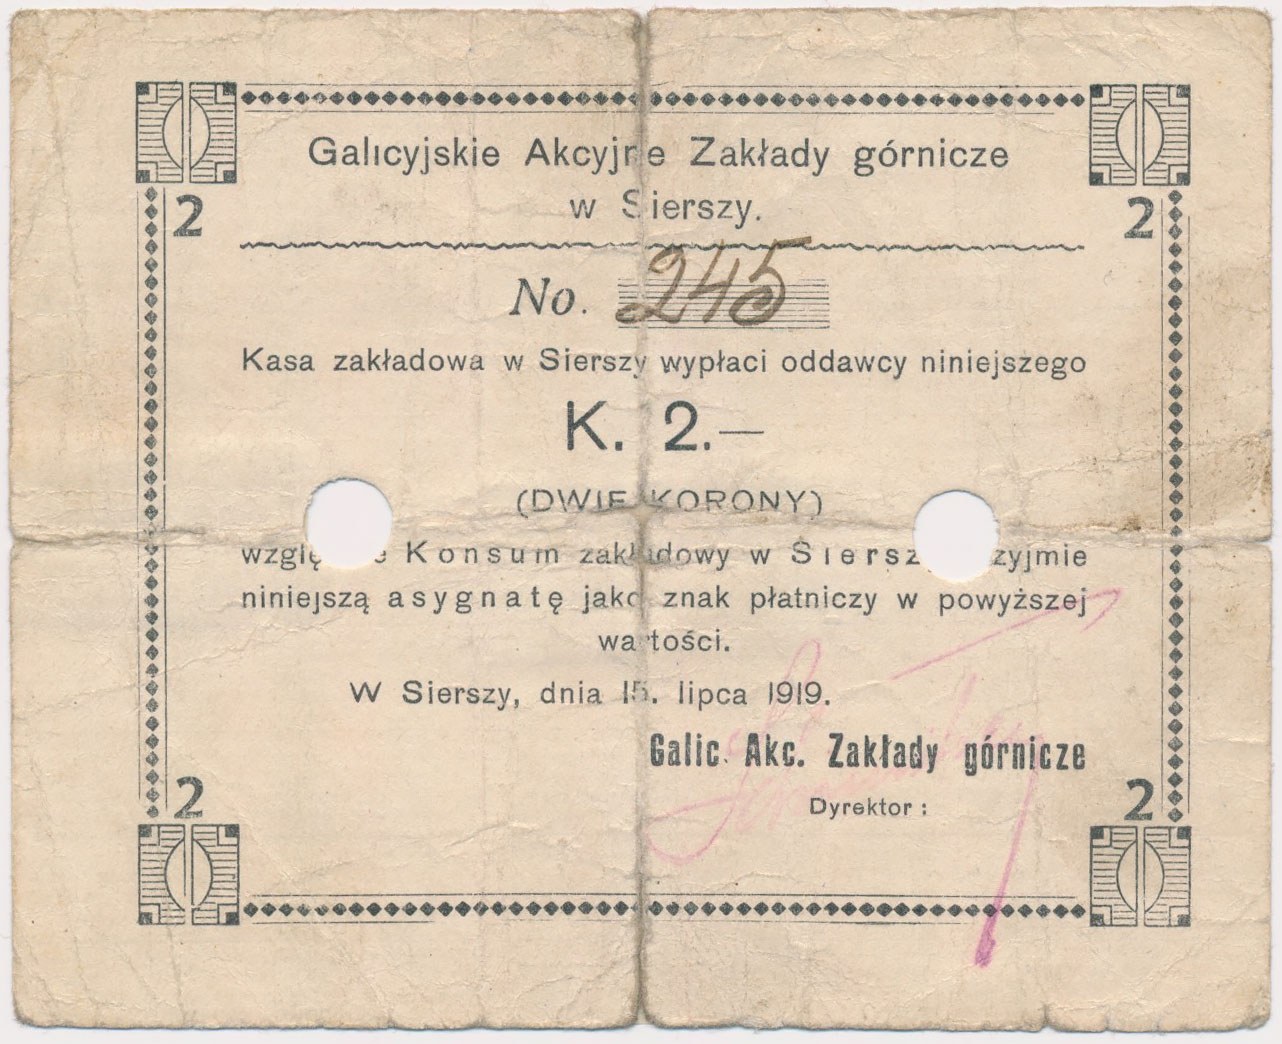 Galicyjskie Akcyjne Zakłady górnicze
w Sierszy.
2 2
No. 245
Kasa zakładowa w Sierszy wypłaci oddawcy niniejszego
K. 2.—
(DWIE KORONY)
Konsum zakładowy w Sierszy
niniejszą asygnatę jako znak płatniczy w powyższej
wartości.
W Sierszy, dnia 15. lipca 1919.
Galic. Akc. Zakłady górnicze
2 2
Dyrektor: